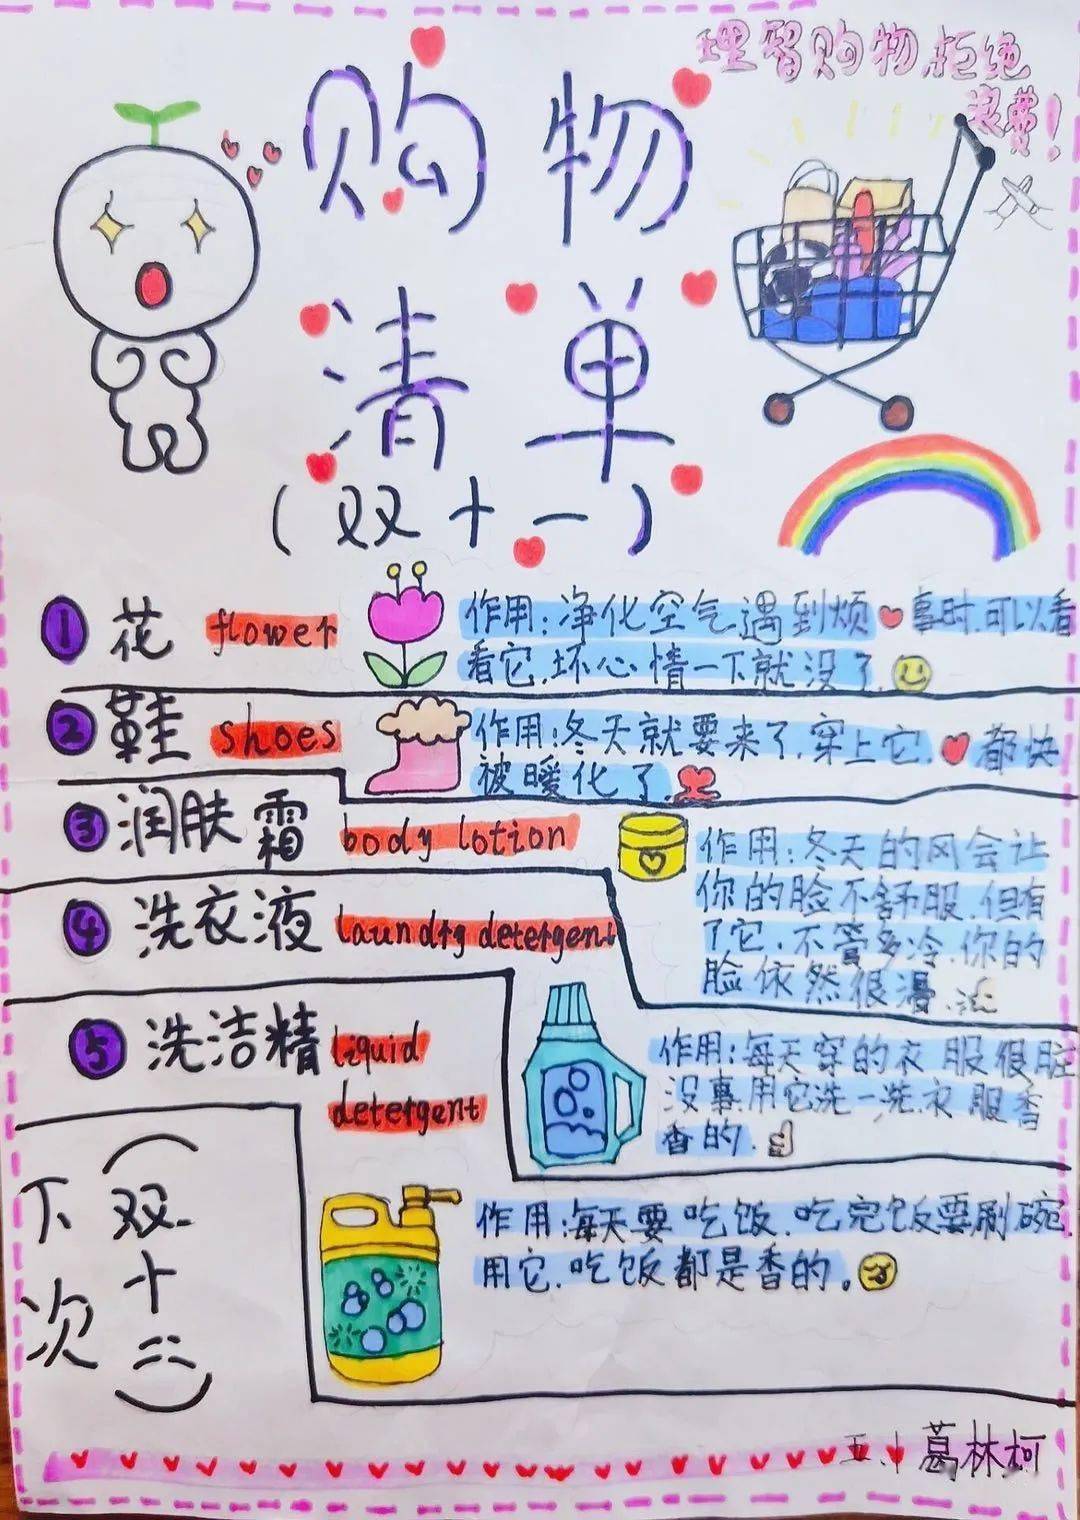 理智购物,拒绝
浪费!
购物
清单
(双十一)
① 花 flower
作用:净化空气遇到烦事时,可以看
看它,坏心情一下就没了.
② 鞋 shoes
作用:冬天就要来了,穿上它,都快
被暖化了.
③ 润肤霜 body lotion
作用:冬天的风会让
你的脸不舒服,但有
了它,不管多冷,你的
脸依然很滑.
④ 洗衣液 laundry detergent
作用:每天穿的衣服很脏
没事,用它洗一洗,衣服香
香的.
⑤ 洗洁精 liquid
detergent
作用:每天要吃饭,吃完饭要刷碗,
用它,吃饭都是香的。
下次
(双十二)
葛林柯